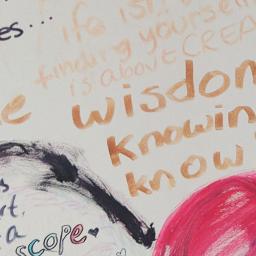 es...
ife isn
finding yourself
is about CREA
e wisdom
knowin
know
s
rt.
a
scope